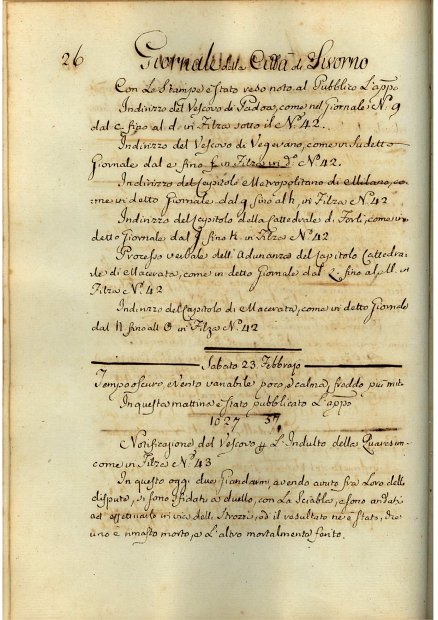 26 Giornale della Città di Livorno
Con Le Stampe è stato reso noto al Pubblico L'appo
Indirizzo del Vescovo di Padoa, come nel Giornale N.º 9
dal c. fino al d. in Filza sotto il N.º 42.
Indirizzo del Vescovo di Vegevano, come in Sudetto
Giornale dal e fino f. in Filza in d.º N.º 42.
Indirizzo del Capitolo Metropolitano di Milano, co=
me in detto Giornale dal g fino al h, in Filza N.º 42
Indirizzo del Capitolo della Cattedrale di Forlì, come in
detto Giornale dal fino K. in Filza N.º 42
Processo verbale dell'Adunanza del Capitolo Cattedra=
le di Macerata, come in detto Giornale dal L. fino al M. in
Filza N.º 42
Indirizzo del Capitolo di Macerata, come in detto Giornale
dal N fino all'O in Filza N.º 42
Sabato 23 Febbrajo
Tempo oscuro, Vento variabile poco, e calma, freddo più mite
In questa mattina è stato pubblicato L'appo
1027 37
Notificazione del Vescovo L'Indulto della Quaresima
come in Filza N.º 43
In questo oggi due Giandarmi, avendo avuto fra Loro delle
dispute, si sono sfidati a duello, con La Sciabla, e sono andati
ad effettuarlo in vic. delli Strozzi, ed il resultato ne è stato, che
uno è rimasto morto, e L'altro mortalmente ferito.